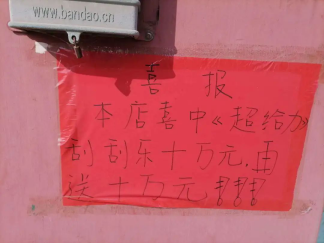 www.bandao.cn
喜报
本店喜中《超给力》
刮刮乐十万元.再
送十万元!!!